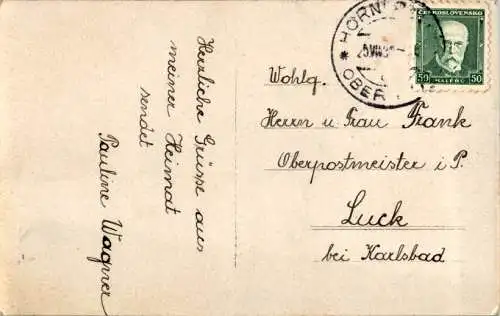 Herzliche Grüsse aus
meiner Heimat
sendet
Pauline Wagner
ČESKOSLOVENSKO
50 HALÉŘŮ 50
HORNÍ
OBER
Wohlg.
Herrn u. Frau Frank
Oberpostmeister i. P.
Luck
bei Karlsbad.